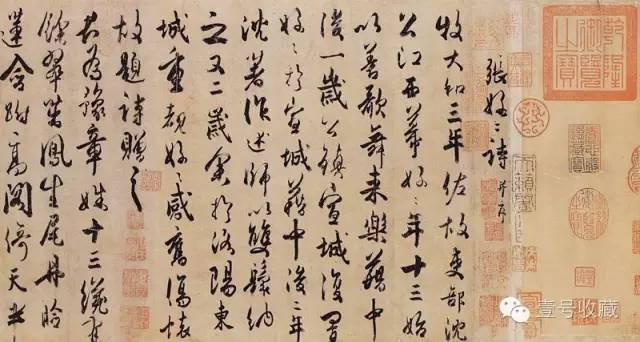 乾隆御覽之寶
張好〻詩 并序
牧大和三年佐故吏部沈
公江西幕好〻年十三始
以善歌舞来樂籍中
後一歲公鎮宣城復置
好〻於宣城籍中後二年
沈著作述師以雙鬟納
之又二歲余於洛陽東
城重覩好〻感舊傷懷
故題詩贈之
君為豫章姝十三纔有
餘翠茁鳳生尾丹臉
蓮含跗高閣倚天半
壹号收藏